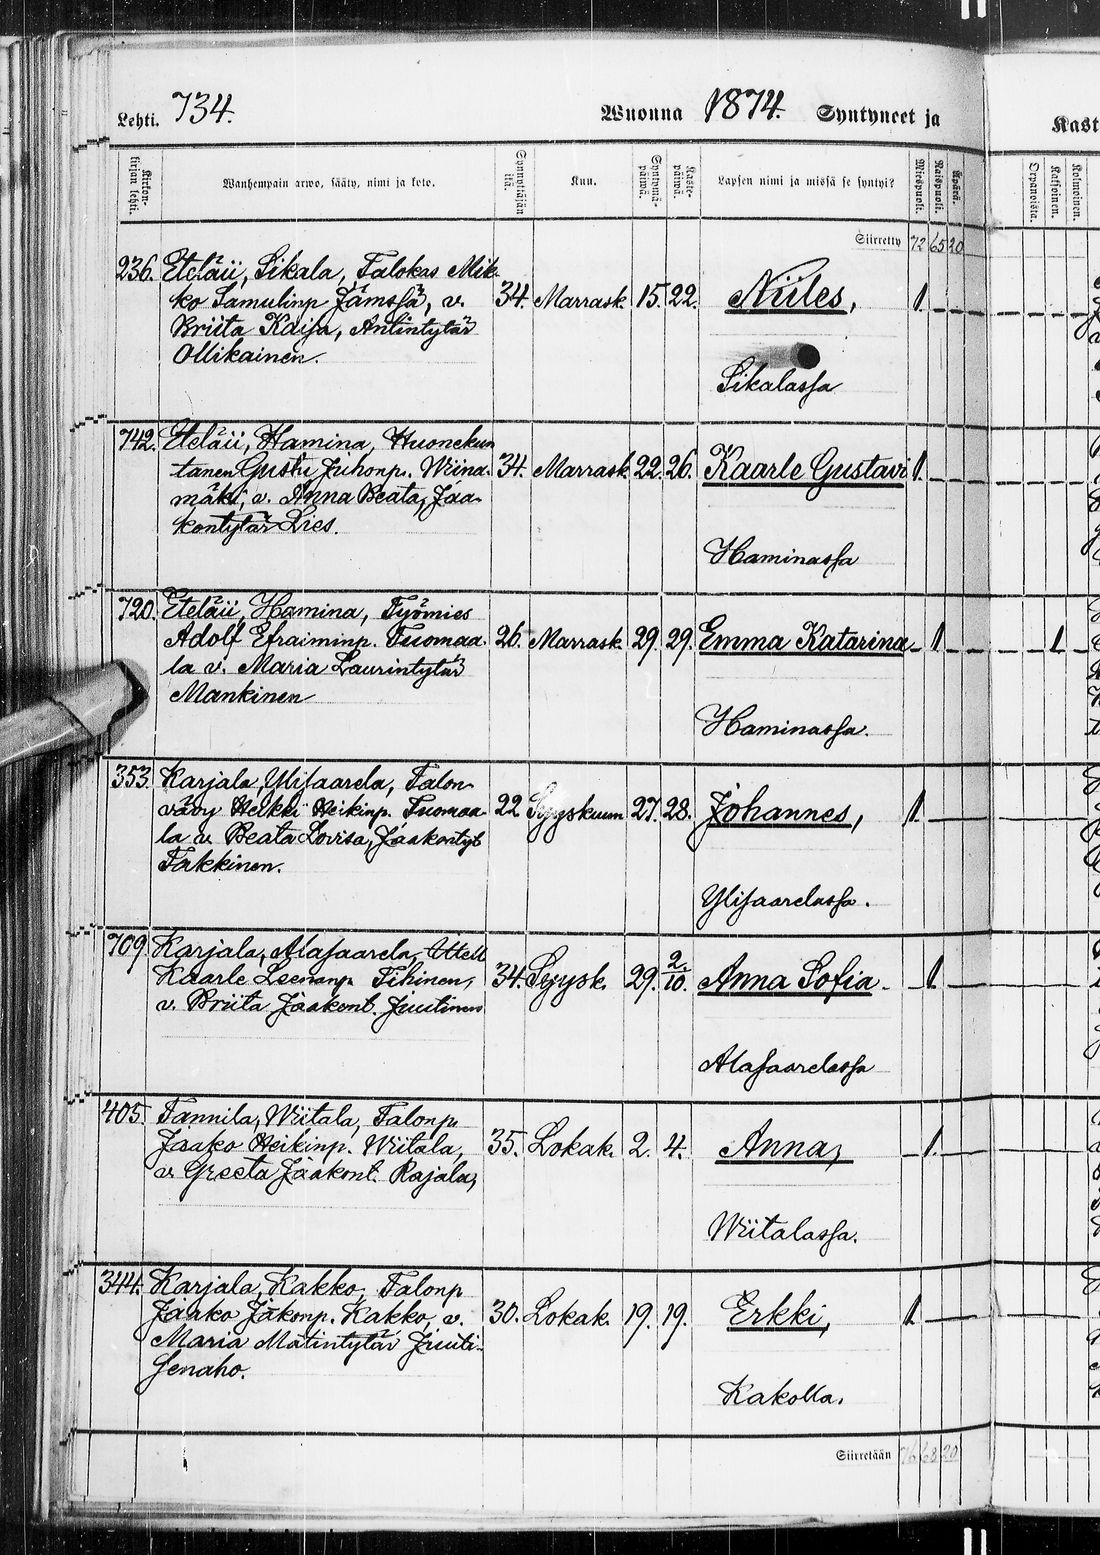 Lehti. 734. Wuonna 1874. Syntyneet ja
Kast
Kirkon-kirjan lehti.
Wanhempain arwo, sääty, nimi ja koto.
Synnyttäjän ikä.
Kuu.
Syntymä-päiwä.
Kaste-päiwä.
Lapsen nimi ja missä se syntyi?
Miespuoli.
Waispuoli.
Orpanoista.
Kaksoinen.
Kolmoinen.
Siirretty 72 65 20
236. Eteläii, Sikala, Talokas Mik-
ko Samulinp Jämssä, v. 34. Marrask. 15. 22. Niiles, 1
Briita Kaisa, Antintytär
Ollikainen.
Sikalassa
742. Eteläii, Hamina, Huonekun
tanen Gusti Juhonp. Wiina- 34. Marrask. 22. 26. Kaarle Gustavi 1.
mäki, v. Anna Beata, Jaa-
kontytär Lies.
Haminassa
720. Eteläii, Hamina, Työmies
Adolf Efraiminp. Tuomaa- 26. Marrask. 29. 29. Emma Katarina 1
la v. Maria Laurintytär
Mankinen
Haminassa.
353. Karjala, Ylisaarela, Talon-
vävy Heikki Heikinp. Tuomaa- 22 Syyskuun 27. 28. Johannes, 1.
la v. Beata Lovisa, Jaakontyt
Takkinen.
Ylisaarelassa.
709. Karjala, Alasaarela,
Kaarle Tihinen, 34. Syysk. 29. 2/10. Anna Sofia 1
v. Briita Jaakont. Juutinen
Alasaarelassa
405. Tannila, Wiitala, Talonp.
Jaako Heikinp. Wiitala, 35. Lokak. 2. 4. Anna, 1
v. Greeta Jaakont. Rajala,
Wiitalassa.
344. Karjala, Kakko, Talonp
Jaako Jakonp. Kakko, v. 30. Lokak. 19. 19. Erkki, 1
Maria Matintytär Juuti-
senaho.
Kakolla.
Siirretään 76 68 20